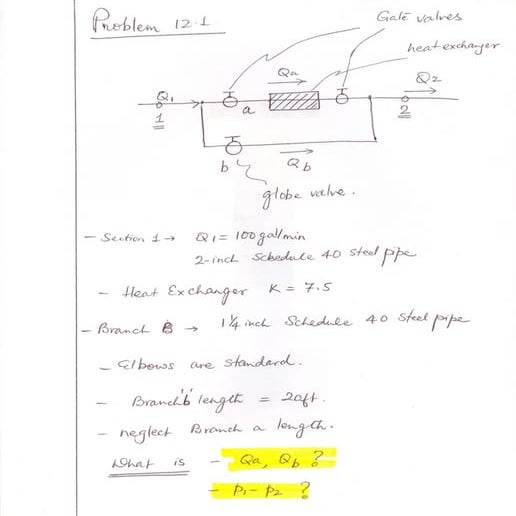 Problem 12.1
Gate valves
heat exchanger
Qa
Q2
Q1
1
a
2
b
Qb
globe valve.
- Section 1 → Q1 = 100 gal/min
2-inch Schedule 40 Steel pipe
- Heat Exchanger K = 7.5
- Branch B → 1 1/4 inch Schedule 40 Steel pipe
- Elbows are standard.
- Branch 'b' length = 20ft.
- neglect Branch a length.
What is - Qa, Qb ?
- P1 - P2 ?